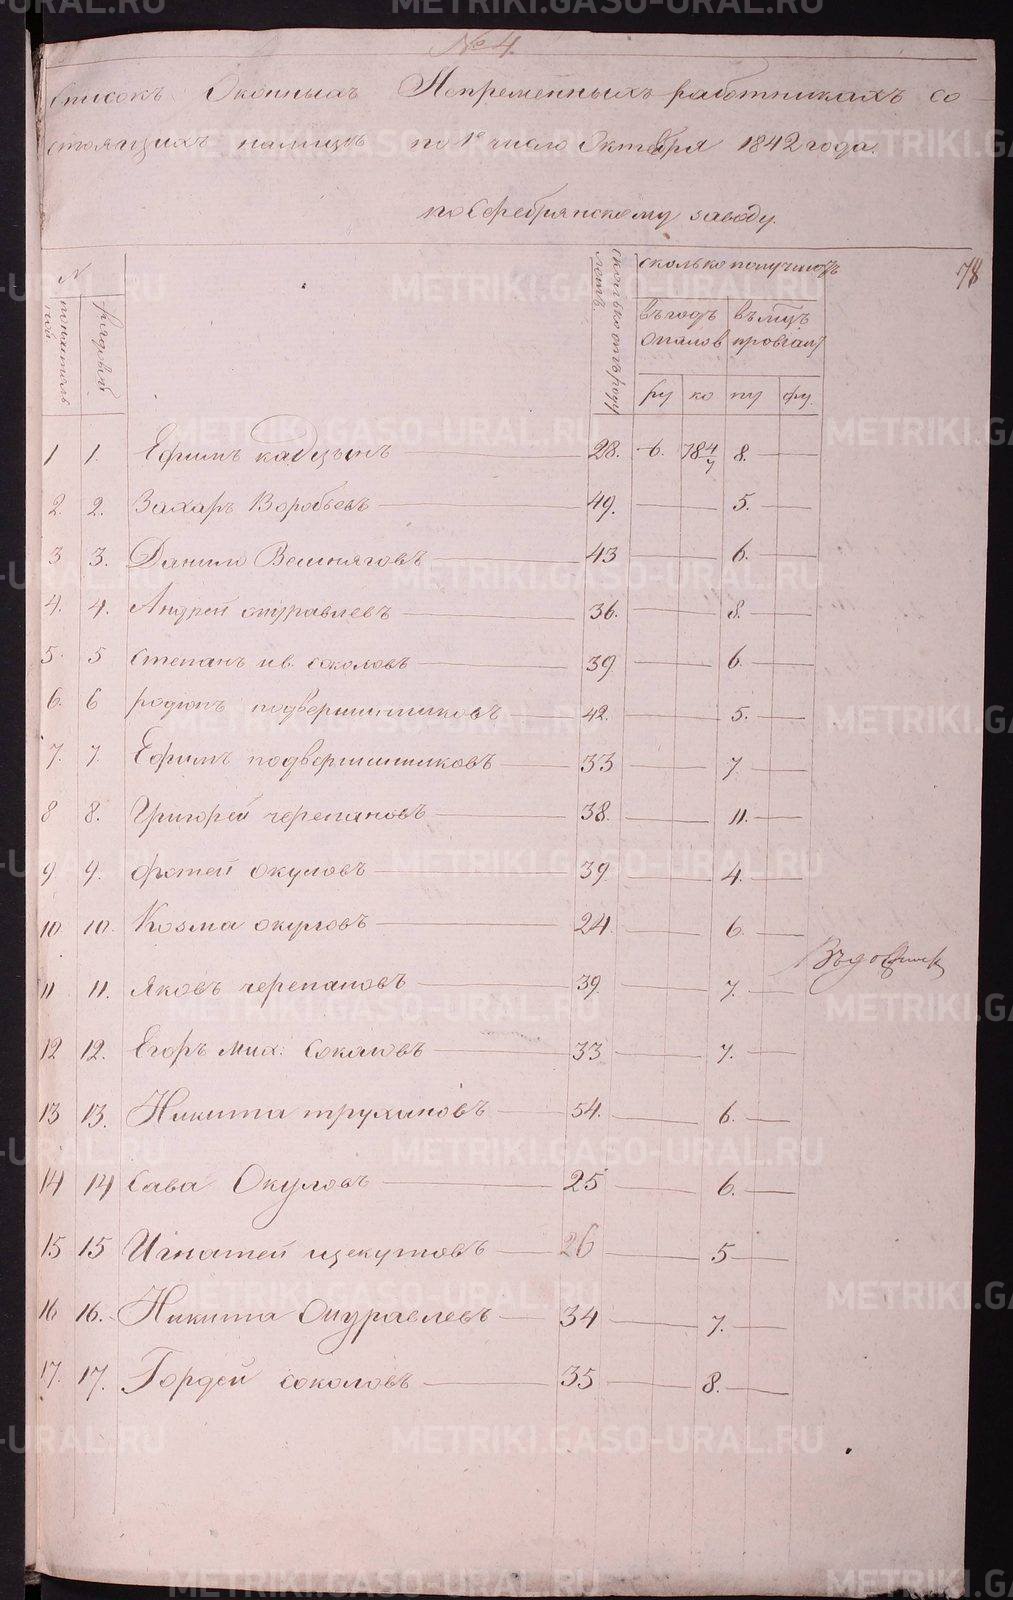 № 4.
Списокъ Оконныхъ Непременныхъ работникахъ со-
стоящихъ налицъ по 1е число Октября 1842 года.
по Серебрянскому заводу.
78
N
рядовый
сколько отъ роду летъ.
сколько получаютъ
въ годъ окладов
въ мцъ провiант
ру ко пу фу.
1 1. Ефимъ кадцынъ 28. 6. 78 4/7 8.
2. 2. Захаръ Воробьевъ 49. 5.
3 3. Данило Вешняговъ 43 6.
4. 4. Андрей журавлевъ 36. 8.
5. 5 Степанъ ив. соколовъ 39 6.
6. 6 родiонъ подвершинниковъ 42. 5.
7. 7. Ефимъ подвершинниковъ 33 7
8 8. Григорей черепановъ 38. 11.
9 9. фотей окуловъ 39 4.
10 10. Козма окуловъ 24 6.
11 11. Яковъ черепановъ 39 7.
12 12. Егоръ мих: Соколовъ 33 7.
13 13. Никита трухиновъ 54. 6.
14 14 Сава Окуловъ 25 6.
15 15 Игнатей щекутовъ 26 5
16 16. Никита Журавлевъ 34 7.
17. 17. Гордей соколовъ 35 8.
METRIKI.GASO-URAL.RU